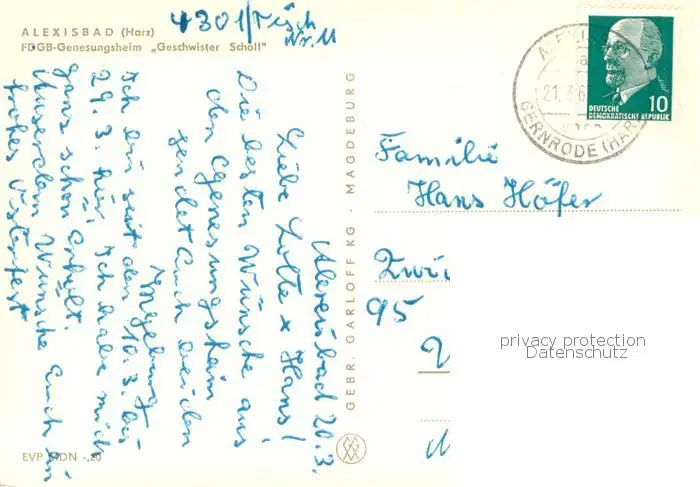 4301/Tisch
Nr. 11
ALEXISBAD (Harz)
FDGB-Genesungsheim „Geschwister Scholl"
Alexisbad 20.3.
Liebe Lotte x Hans!
Die besten Wünsche aus
den Genesungsheim
sendet Euch beiden
Ingeburg
Ich bin seit den 10.3. bis
29.3. hier, Ich habe mich
ganz schön erholt.
Ausserdem Wünsche Euch ein
frohes Osterfest
EVP MDN -,20
GEBR. GARLOFF KG · MAGDEBURG
21.3.6
GERNRODE (HARZ)
DEUTSCHE
DEMOKRATISCHE REPUBLIK
10
Familie
Hans Höfer
95
privacy protection
Datenschutz